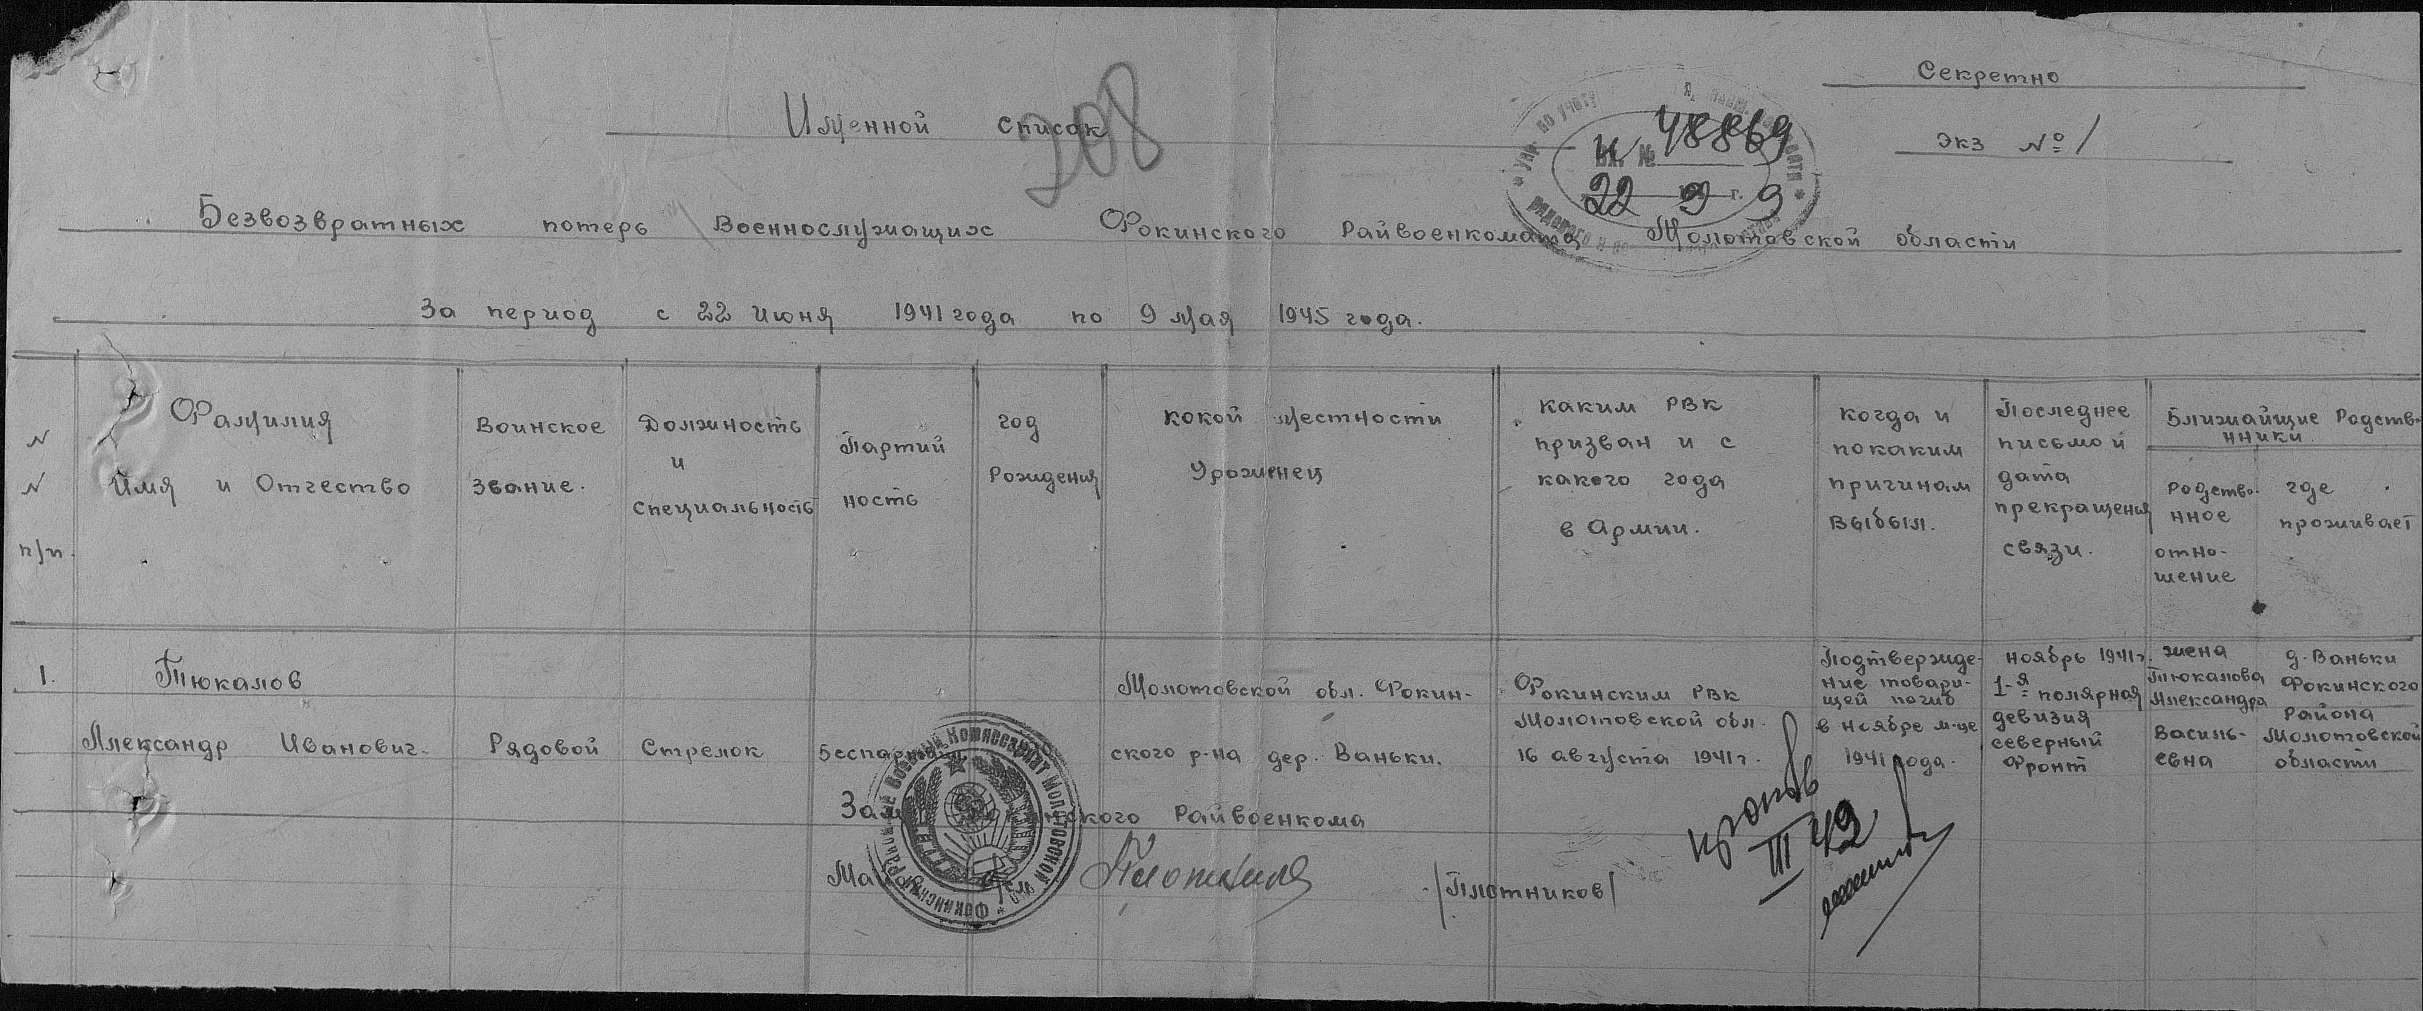 Секретно
Именной список
208
Экз №1
Вх. № 48869
22 9 г. 9
Безвозвратных потерь Военнослужащих Фокинского Райвоенкомата Молотовской области
За период с 22 июня 1941 года по 9 мая 1945 года.
N N п/п.
Фамилия
Имя и Отчество
Воинское
звание.
Должность
и
специальность
Партий
ность
год
Рождения
кокой местности
Уроженец
каким РВК
призван и с
какого года
в Армии.
когда и
покаким
причинам
выбыл.
Последнее
письмо и
дата
прекращения
связи.
Ближайщие Родств-
нники
Родстве-
нное
отно-
шение
где
проживает
1.
Тюкалов
Александр Иванович.
Рядовой
Стрелок
Беспартийный
Молотовской обл. Фокин-
ского р-на дер. Ваньки.
Фокинским РВК
Молотовской обл.
16 августа 1941 г.
Подтвержде-
ние товари-
щей погиб
в ноябре м-це
1941 года.
ноябрь 1941 г.
1-я полярная
девизия
северный
Фронт
жена
Тюкалова
Александра
Василь-
евна
д. Ваньки
Фокинского
Района
Молотовской
области
Зам Фокинского Райвоенкома
Майор
/Плотников/
Военный Комиссариат Молотовской
Фокинский
III 42